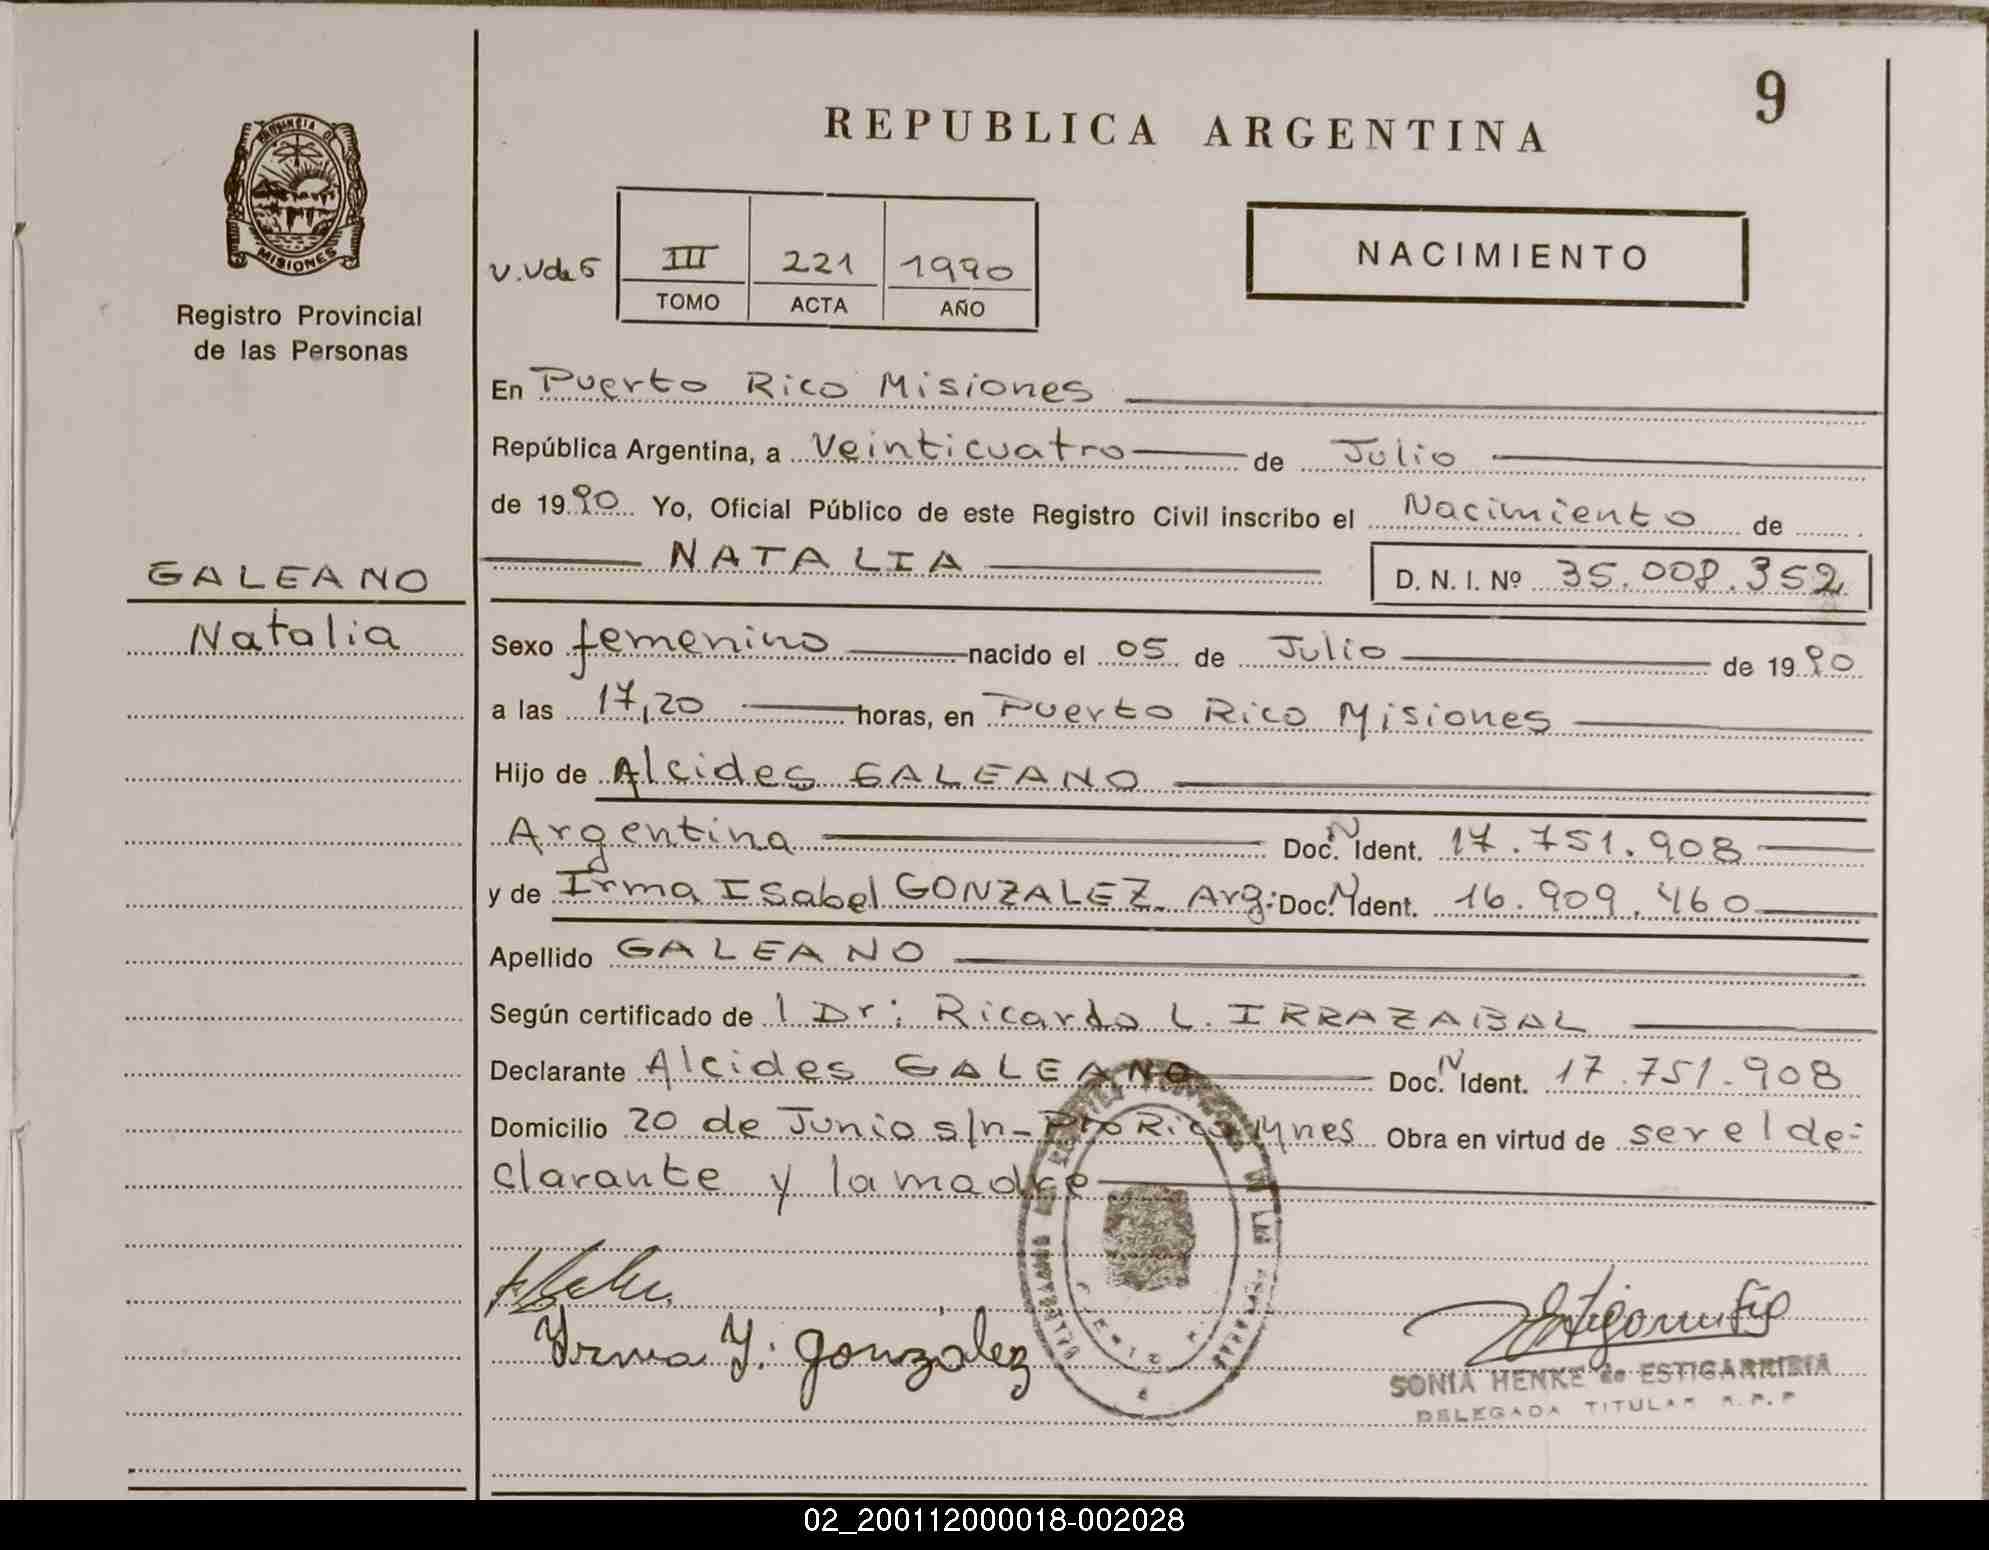 9
REPUBLICA ARGENTINA
PROVINCIA DE
MISIONES
Registro Provincial
de las Personas
V.Vdes
III 221 1990
TOMO ACTA AÑO
NACIMIENTO
En Puerto Rico Misiones
República Argentina, a Veinticuatro de Julio
de 1990 Yo, Oficial Público de este Registro Civil inscribo el Nacimiento de
GALEANO
Natalia
NATALIA D. N. I. Nº 35.008.352
Sexo femenino nacido el 05 de Julio de 1990
a las 17,20 horas, en Puerto Rico Misiones
Hijo de Alcides GALEANO
Argentina Doc. N Ident. 17.751.908
y de Irma Isabel GONZALEZ. Arg: Doc. N Ident. 16.909.460
Apellido GALEANO
Según certificado de l Dr: Ricardo L. IRRAZABAL
Declarante Alcides GALEANO Doc. N Ident. 17.751.908
Domicilio 20 de Junio s/n- Pto Rico Mnes Obra en virtud de ser el de-
clarante y la madre
Yrma Y. gonzalez
SONIA HENKE de ESTIGARRIBIA
DELEGADA TITULAR R.P.P
02_200112000018-002028